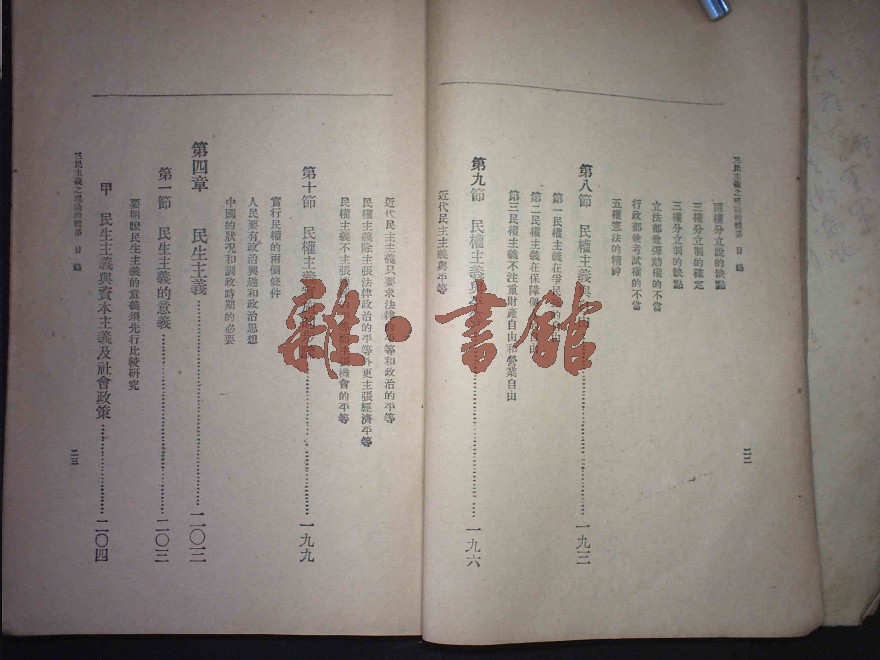 三民主義之理論的體系 目錄
兩權分立說的缺點
三權分立制的確定
三權分立制的缺點
立法部兼彈劾權的不當
行政部兼考試權的不當
五權憲法的精神
第八節 民權主義與自由 一九三
第一民權主義在爭民 的自由
第二民權主義在保障個 自由
第三民權主義不注重財產自由和營業自由
第九節 民權主義與 一九六
近代民主主義與平等
二二
近代民主主義只要求法律 平等和政治的平等
民權主義除主張法律政治的平等外更主張經濟平等
民權主義不主張 機會的平等
第十節 民權主義 一九九
實行民權的兩個條件
人民要有政治興趣和政治思想
中國的狀況和訓政時期的必要
第四章 民生主義 二〇三
第一節 民生主義的意義 二〇三
要明瞭民生主義的意義須先行比較研究
甲 民生主義與資本主義及社會政策 二〇四
三民主義之理論的體系 目錄
二三
雜·書館